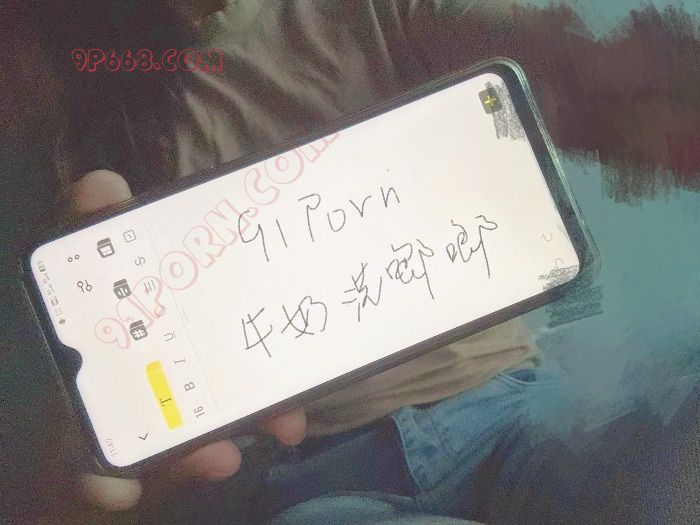 9P668.COM
91PORN.COM
91Porn
牛奶洗
16 B I U
T
11:49